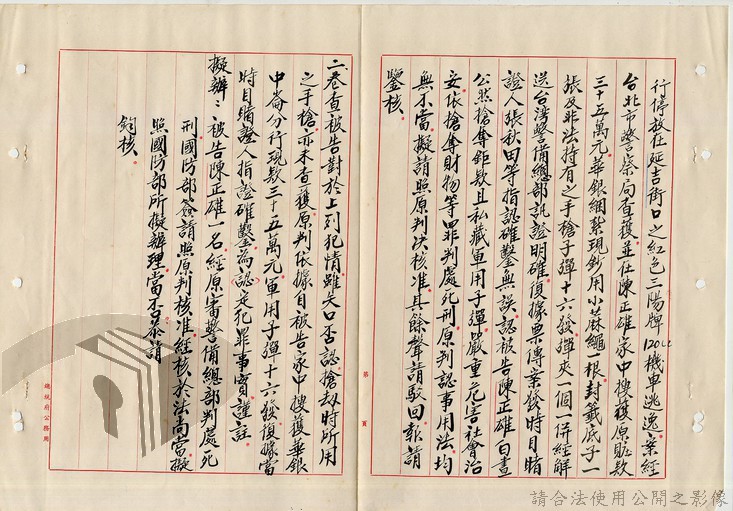 行停放在延吉街口之紅色三陽牌120cc機車逃逸案經
台北市警察局查獲並在陳正雄家中搜獲原贓款
三十五萬元華銀綑紮現鈔用小蔴繩一根封籤底子一
張及非法持有之手槍子彈十六發彈夾一個一併經解
送台灣警備總部訊證明確復據票傳案發時目睹
證人張秋田等指認確鑿無誤認被告陳正雄白晝
公然搶奪鉅款且私藏軍用子彈嚴重危害社會治
安依搶奪財物等罪判處死刑原判認事用法均
無不當擬請照原判決核准其餘聲請駁回報請
鑒核。
二、卷查被告對於上列犯情雖矢口否認搶劫時所用
之手槍亦未查獲原判依據自被告家中搜獲華銀
中崙分行現款三十五萬元軍用子彈十六發復據當
時目睹證人指證確鑿為認定犯罪事實謹註
擬辦：被告陳正雄一名經原審警備總部判處死
刑國防部簽請照原判核准經核於法尚當擬
照國防部所擬辦理當否恭請
鈞核。
總統府公務用
第 頁
請合法使用公開之影像